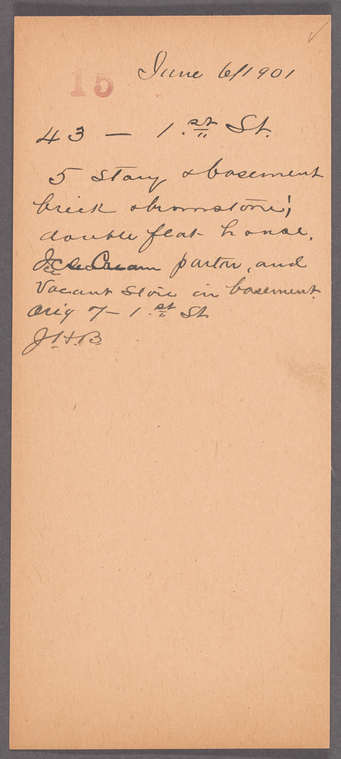 15
June 6/1901
43 — 1.st St.
5 Story & basement
brick & brownstone;
double flat house.
Ice Cream parlor, and
Vacant Store in basement.
Orig 7 — 1.st St.
J.H.B